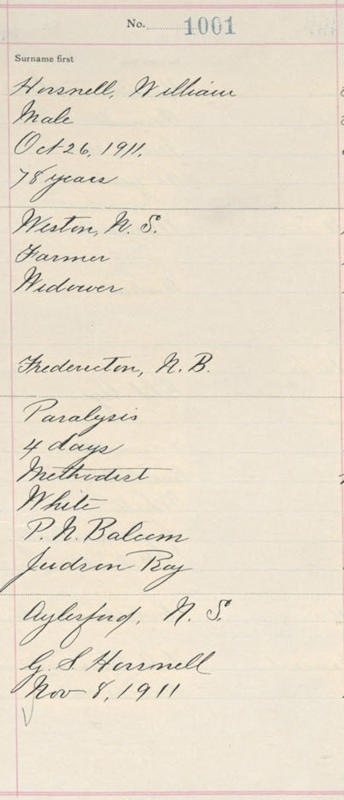 No. 1001
Surname first
Horsnell, William
Male
Oct 26, 1911.
78 years
Weston, N. S.
Farmer
Widower
Fredericton, N.B.
Paralysis
4 days
Methodist
White
P. N. Balcom
Judson Ray
Aylesford, N. S.
G. S. Horsnell
Nov 8, 1911